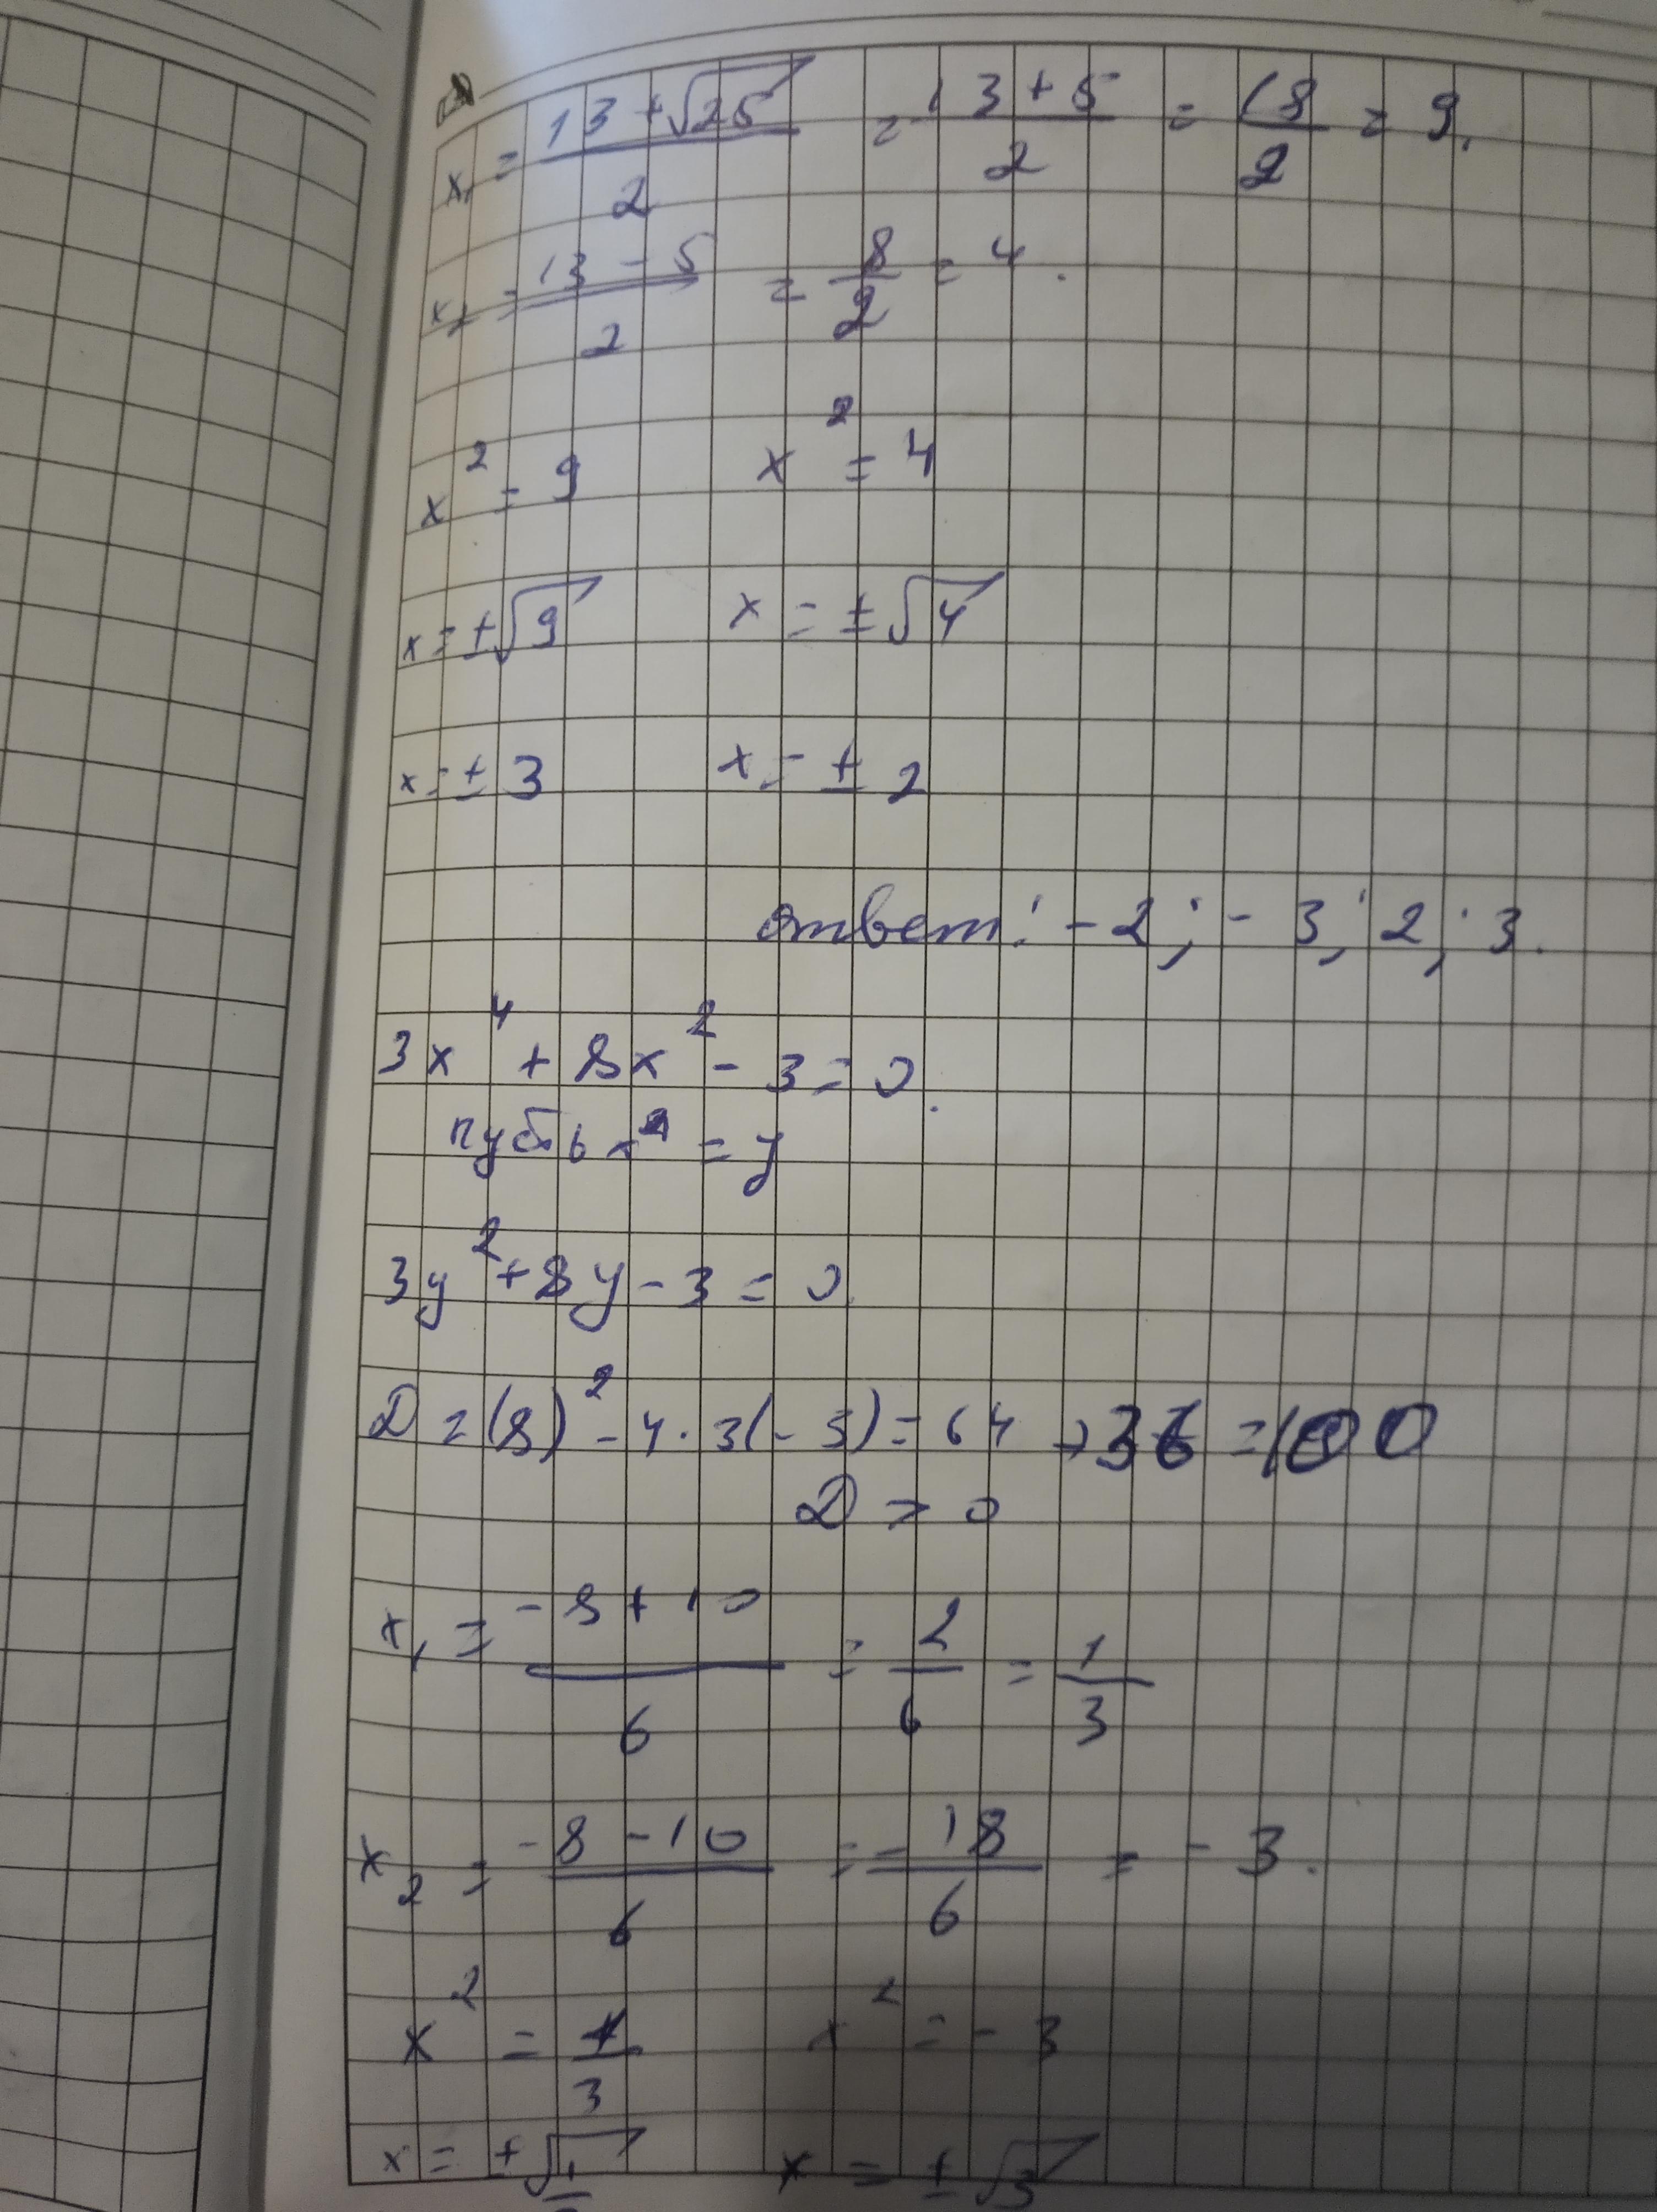 x₁ = (13 + √25)/2 = (13 + 5)/2 = 18/2 = 9.
x₂ = (13 - 5)/2 = 8/2 = 4.
x² = 9 x² = 4
x = ±√9 x = ±√4
x = ± 3 x = ± 2
ответ: -2; -3; 2; 3.
3x⁴ + 8x² - 3 = 0.
пусть x² = y
3y² + 8y - 3 = 0.
D = (8)² - 4 · 3(-3) = 64 + 36 = 100
D > 0
x₁ = (-8 + 10)/6 = 2/6 = 1/3
x₂ = (-8 - 10)/6 = -18/6 = -3.
x² = 1/3 x² = -3
x = ±√1 x = ±√3